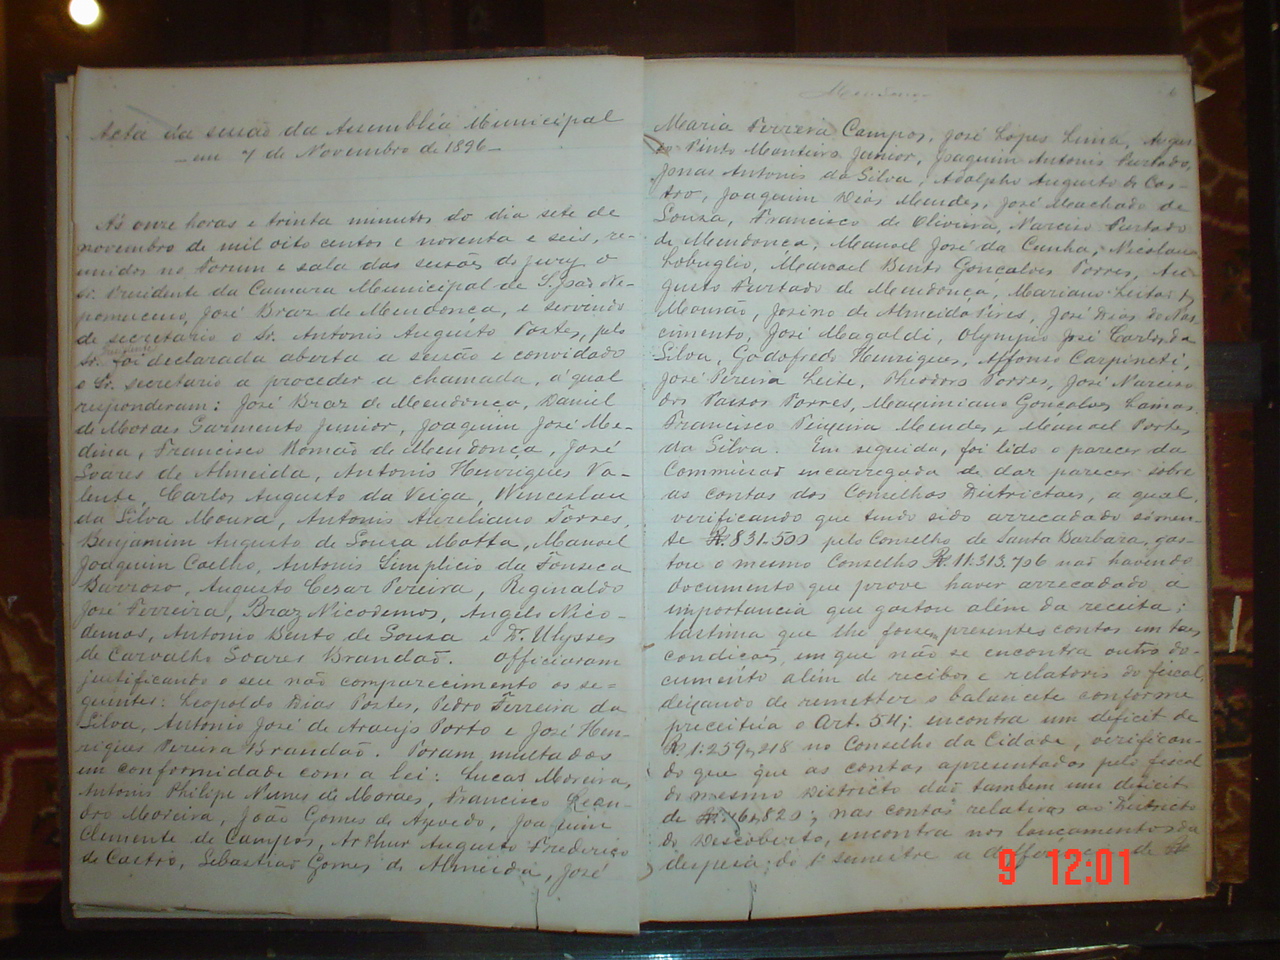 Acta da sessão da Assemblêa Municipal
— em 7 de Novembro de 1896 —
Ás onze horas e trinta minutos do dia sete de
novembro de mil oito centos e noventa e seis, re-
unidos no Forum e sala das sessões do jury o
Sr. Presidente da Camara Municipal de S. João Ne-
pomuceno, José Braz de Mendonça, e servindo
de secretario o Sr. Antonio Augusto Portes, pelo
Sr. foi declarada aberta a sessão e convidado
o Sr. secretario a proceder a chamada, á qual
responderam: José Braz de Mendonça, Daniel
de Moraes Sarmento Junior, Joaquim José Me-
dina, Francisco Romão de Mendonça, José
Soares de Almeida, Antonio Henriques Va-
lente, Carlos Augusto da Veiga, Wincesláu
da Silva Moura, Antonio Aureliano Torres,
Benjamim Augusto de Souza Motta, Manoel
Joaquim Coelho, Antonio Simplicio da Fonseca
Barroso, Augusto Cezar Pereira, Reginaldo
José Ferreira, Braz Nicodemos, Angelo Nico-
demos, Antonio Bento de Sousa e Dr. Ulysses
de Carvalho Soares Brandão. Officiaram
justificando o seu não comparecimento os se-
guintes: Leopoldo Dias Portes, Pedro Ferreira da
Silva, Antonio José de Araujo Porto e José Hen-
riques Pereira Brandão. Foram multados
em conformidade com a lei: Lucas Moreira,
Antonio Philipe Nunes de Moraes, Francisco Lean-
dro Moreira, João Gomes de Azevedo, Joaquim
Clemente de Campos, Arthur Augusto Frederico
de Castro, Sebastião Gomes de Almeida, José
Mendonça
6
Maria Ferreira Campos, José Lopes Lima, Augus-
to Pinto Monteiro Junior, Joaquim Antonio Furtado,
Jonas Antonio da Silva, Adolpho Augusto de Cas-
tro, Joaquim Dias Mendes, José Machado de
Souza, Francisco de Oliveira, Narciso Furtado
de Mendonça, Manoel José da Cunha, Nicolau
Lobuglio, Manoel Bento Gonçalves Torres, Au-
gusto Furtado de Mendonça, Mariano Leitão
Mourão, Josino de Almeida Pires, José Dias do Nas-
cimento, José Magaldi, Olympio José Carlos da
Silva, Godofredo Henriques, Affonso Carpineti,
José Pereira Leite, Theodoro Torres, José Narciso
dos Passos Torres, Maximiano Gonçalves Lamas,
Francisco Teixeira Mendes e Manoel Portes
da Silva. Em seguida, foi lido o parecer da
Commissão encarregada de dar parecer sobre
as contas dos Conselhos Districtaes, a qual,
verificando que tendo sido arrecadado sómen-
te R. 831.500 pelo Conselho de Santa Barbara, gas-
tou o mesmo Conselho R. 11:313.706 não havendo
documento que prove haver arrecadado a
importancia que gastou além da receita;
lastima que lhe fosse presentes contas em taes
condições, em que não se encontra outro do-
cumento além de recibos e relatorio do fiscal,
deixando de remetter o balancete conforme
preceitúa o Art. 54; encontra um deficit de
R. 1:259,218 no Conselho da Cidade, verifican-
do que que as contas apresentadas pelo fiscal
do mesmo Districto dão tambem um deficit
de nas contas relativas ao Districto
do Descoberto, encontra nos lançamentos da
despesa do 1º semestre a differença de R.
9 12:01